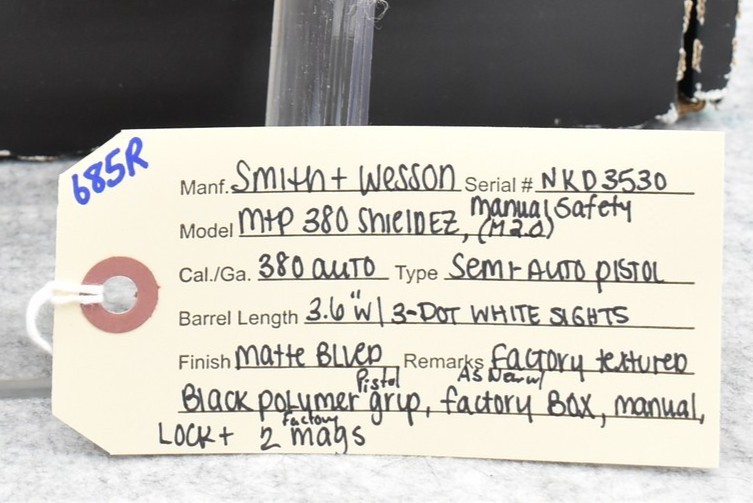 685R
Manf. Smith + Wesson Serial # NKD3530
Model M+P 380 Shield EZ, manual Safety (M2.0)
Cal./Ga. 380 auto Type Semi-Auto pistol
Barrel Length 3.6" w/ 3-Dot White Sights
Finish Matte Blued Remarks Factory textured
Black polymer Pistol grip, As New w/ factory Box, manual,
Lock + 2 Factory mags